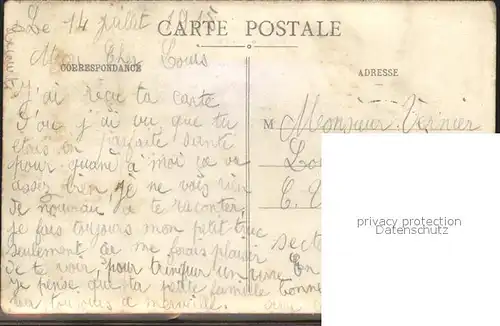 Le 14 juillet 1915
CARTE POSTALE
Mon Cher Louis
CORRESPONDANCE
ADRESSE
J'ai reçu ta carte
J'ai vu que tu
étais en parfaite santé
pour quand à moi ça va
assez bien, je ne vois rien
de nouveau a te raconter,
je fais toujours mon petit truc
seulement ça me ferais plaisir
de te voir, pour trinquer un verre
je pense que ta petite famille
toujours a merveille.
M Monsieur Vernier
Lou
secte
En
bonne
privacy protection
Datenschutz